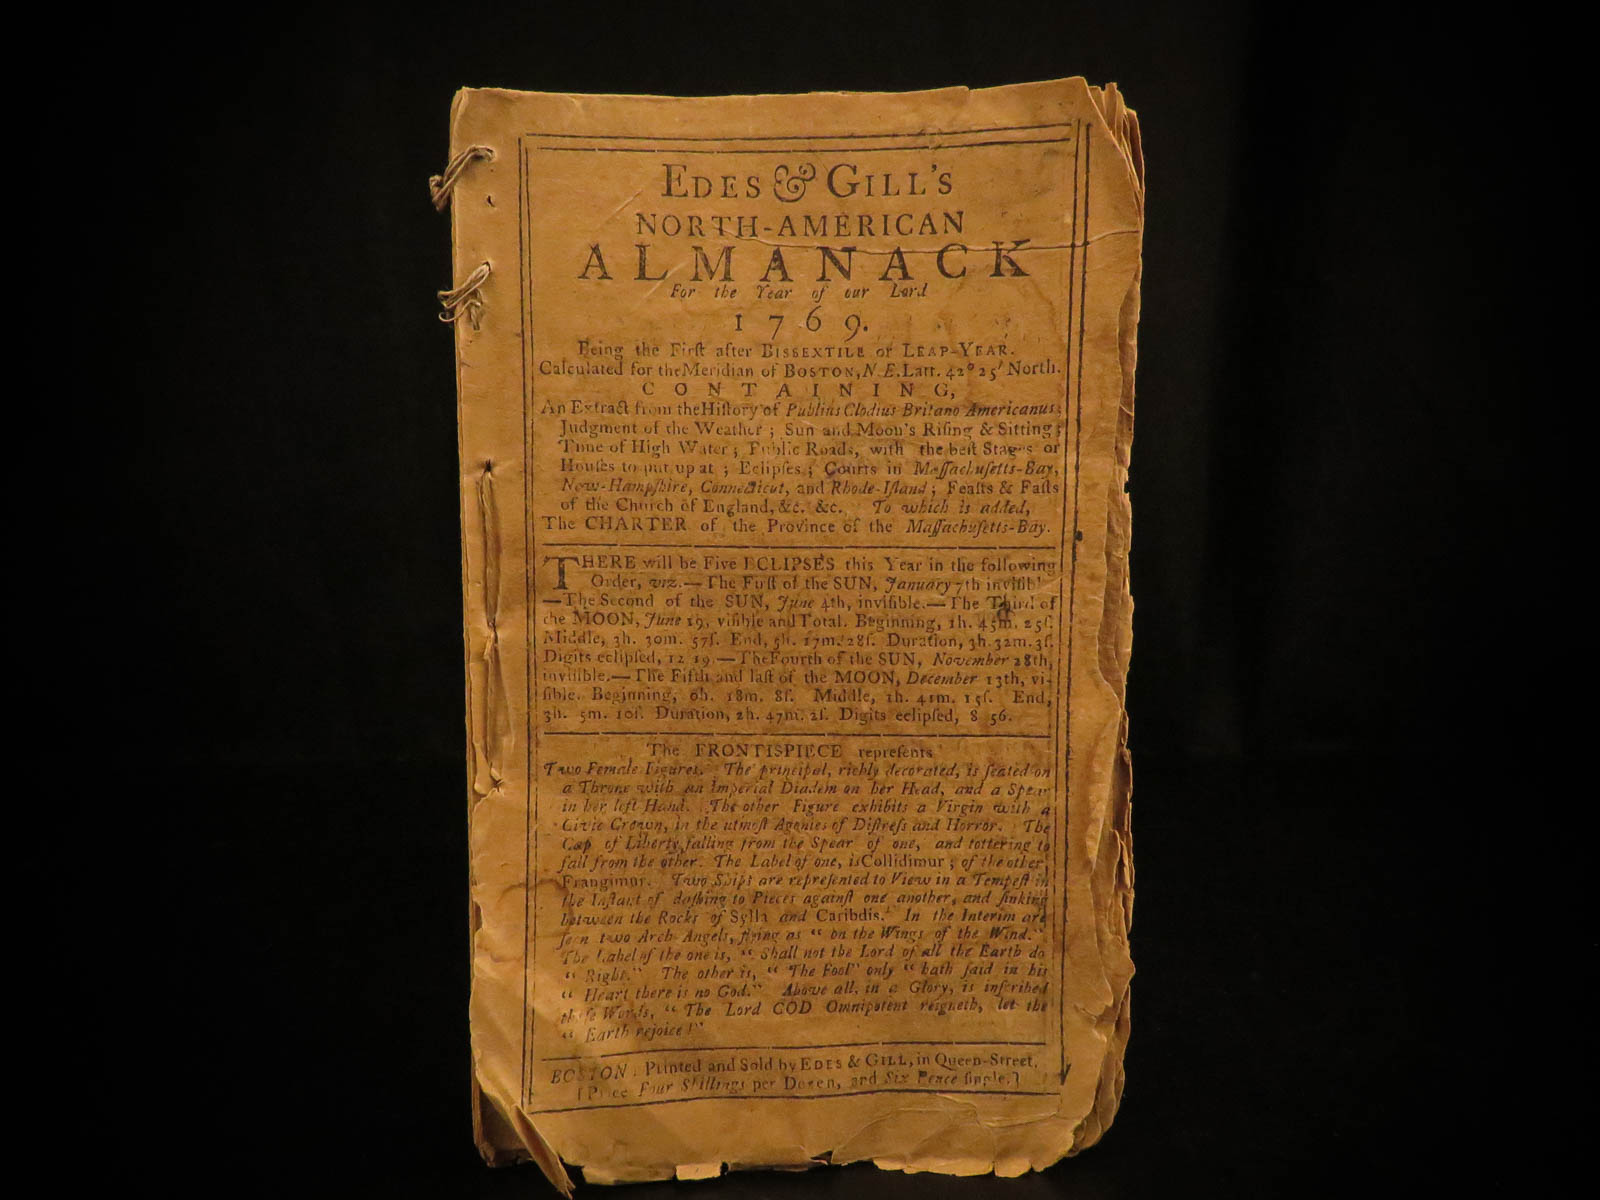 EDES & GILL'S
NORTH-AMERICAN
ALMANACK
For the Year of our Lord
1769.
Being the Firſt after BISSEXTILE or LEAP-YEAR.
Calculated for the Meridian of BOSTON, N.E. Latt. 42° 25′ North.
CONTAINING,
An Extract from the Hiſtory of Publius Clodius Britano Americanus;
Judgment of the Weather; Sun and Moon's Riſing & Sitting;
Time of High Water; Public Roads, with the beſt Stages or
Houſes to put up at; Eclipſes; Courts in Maſſachuſetts-Bay,
New-Hampſhire, Connecticut, and Rhode-Iſland; Feaſts & Faſts
of the Church of England, &c. &c. To which is added,
The CHARTER of the Province of the Maſſachuſetts-Bay.
THERE will be Five ECLIPSES this Year in the following
Order, viz.—The Firſt of the SUN, January 7th inviſibl
—The Second of the SUN, June 4th, inviſible.—The Third of
the MOON, June 19, viſible and Total. Beginning, 1h. 45m. 25ſ.
Middle, 3h. 30m. 57ſ. End, 5h. 17m. 28ſ. Duration, 3h. 32m. 3ſ.
Digits eclipſed, 12 19.—The Fourth of the SUN, November 28th,
inviſible.—The Fifth and laſt of the MOON, December 13th, vi-
ſible. Beginning, 0h. 18m. 8ſ. Middle, 1h. 41m. 15ſ. End,
3h. 5m. 10ſ. Duration, 2h. 47m. 2ſ. Digits eclipſed, 8 56.
The FRONTISPIECE repreſents
Two Female Figures. The principal, richly decorated, is ſeated on
a Throne with an Imperial Diadem on her Head, and a Spear
in her left Hand. The other Figure exhibits a Virgin with a
Civic Crown, in the utmoſt Agonies of Diſtreſs and Horror. The
Cap of Liberty falling from the Spear of one, and tottering to
fall from the other. The Label of one, is Collidimur; of the other,
Frangimur. Two Ships are repreſented to View in a Tempeſt in
the Inſtant of daſhing to Pieces againſt one another, and ſinking
between the Rocks of Sylla and Caribdis. In the Interim are
ſeen two Arch-Angels, flying as "on the Wings of the Wind."
The Label of the one is, "Shall not the Lord of all the Earth do
"Right." The other is, "The Fool" only "hath ſaid in his
"Heart there is no God." Above all, in a Glory, is inſcribed
theſe Words, "The Lord GOD Omnipotent reigneth, let the
"Earth rejoice!"
BOSTON: Printed and Sold by EDES & GILL, in Queen-Street,
[Price Four Shillings per Dozen, and Six Pence ſingle.]